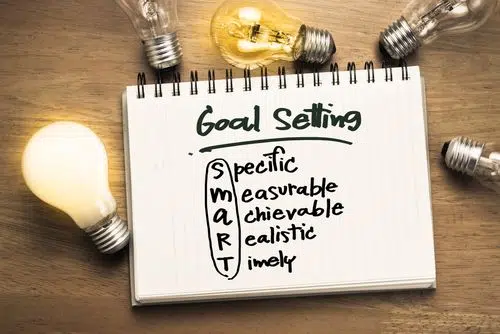 Goal Setting
Specific
measurable
achievable
Realistic
Timely